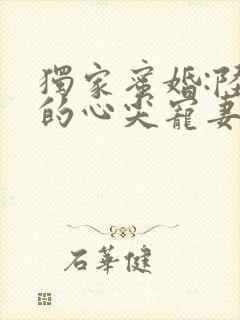 獨家蜜婚:陸
的心尖寵妻
石華健